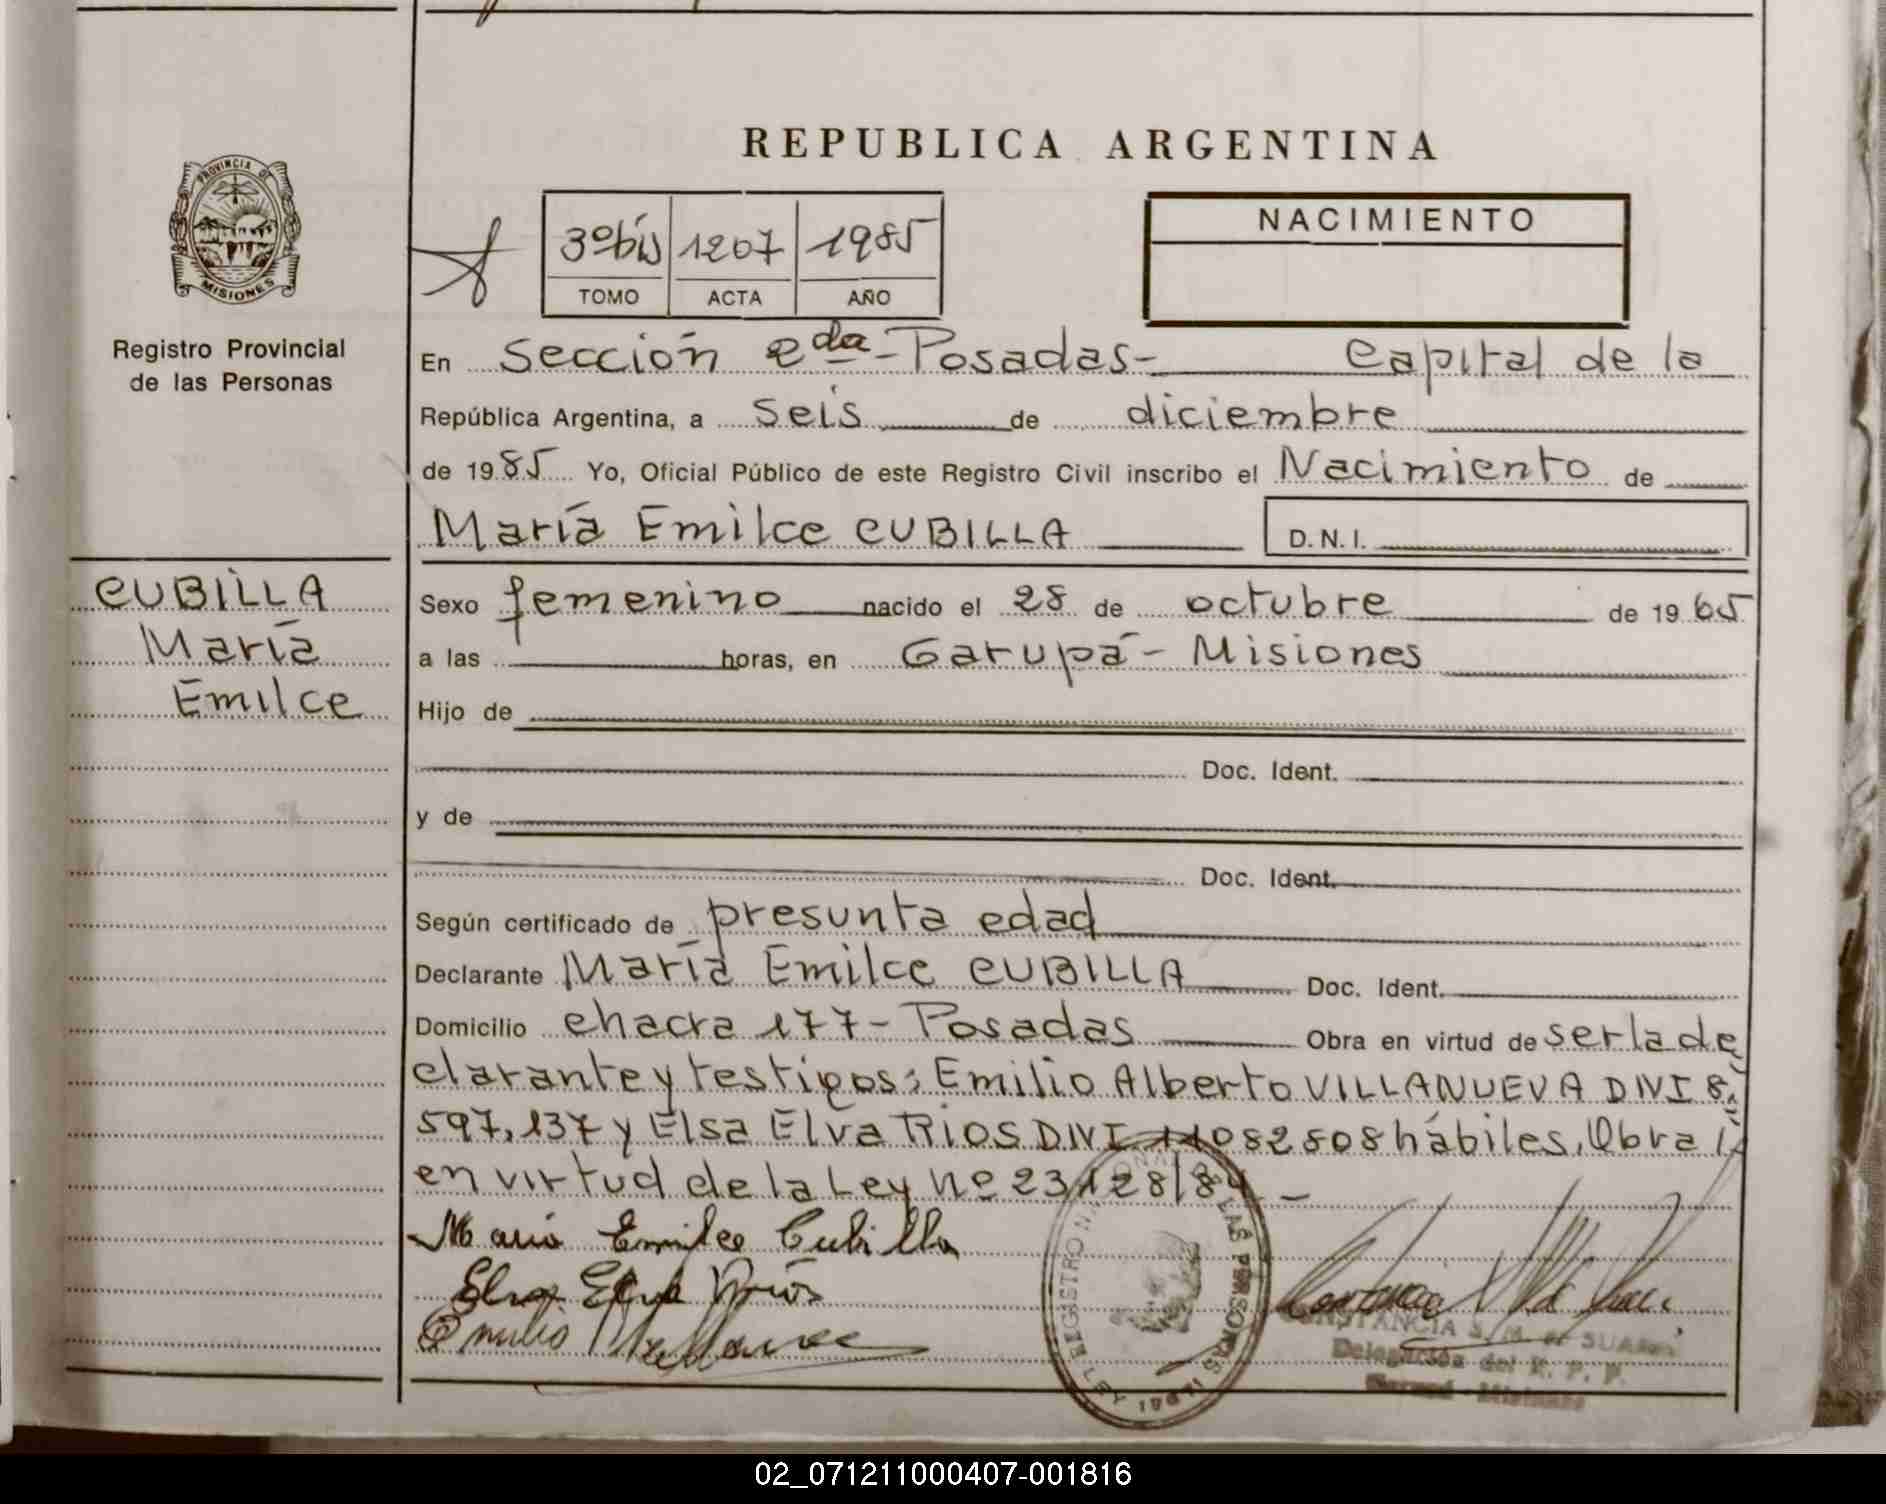 REPUBLICA ARGENTINA
PROVINCIA DE
MISIONES
Registro Provincial
de las Personas
3º bis 1207 1985
TOMO ACTA AÑO
NACIMIENTO
En Sección 2da - Posadas - Capital de la
República Argentina, a seis de diciembre
de 1985 Yo, Oficial Público de este Registro Civil inscribo el Nacimiento de
María Emilce CUBILLA D.N.I.
CUBILLA
María
Emilce
Sexo femenino nacido el 28 de octubre de 1965
a las horas, en Garupá - Misiones
Hijo de
Doc. Ident.
y de
Doc. Ident.
Según certificado de presunta edad
Declarante María Emilce CUBILLA Doc. Ident.
Domicilio chacra 177 - Posadas Obra en virtud de ser la de
clarante y testigos: Emilio Alberto VILLANUEVA DNI 8.
597.137 y Elsa Elva RIOS DNI 11082808 hábiles. Obra
en virtud de la Ley Nº 23128/84 -
María Emilce Cubilla
Elsa Elva Ríos
Emilio Villanueva
REGISTRO LAS PERSONAS
CONSTANCIA S. M. de SUAREZ
Delegación del R. P. P.
Garupá - Misiones
02_071211000407-001816